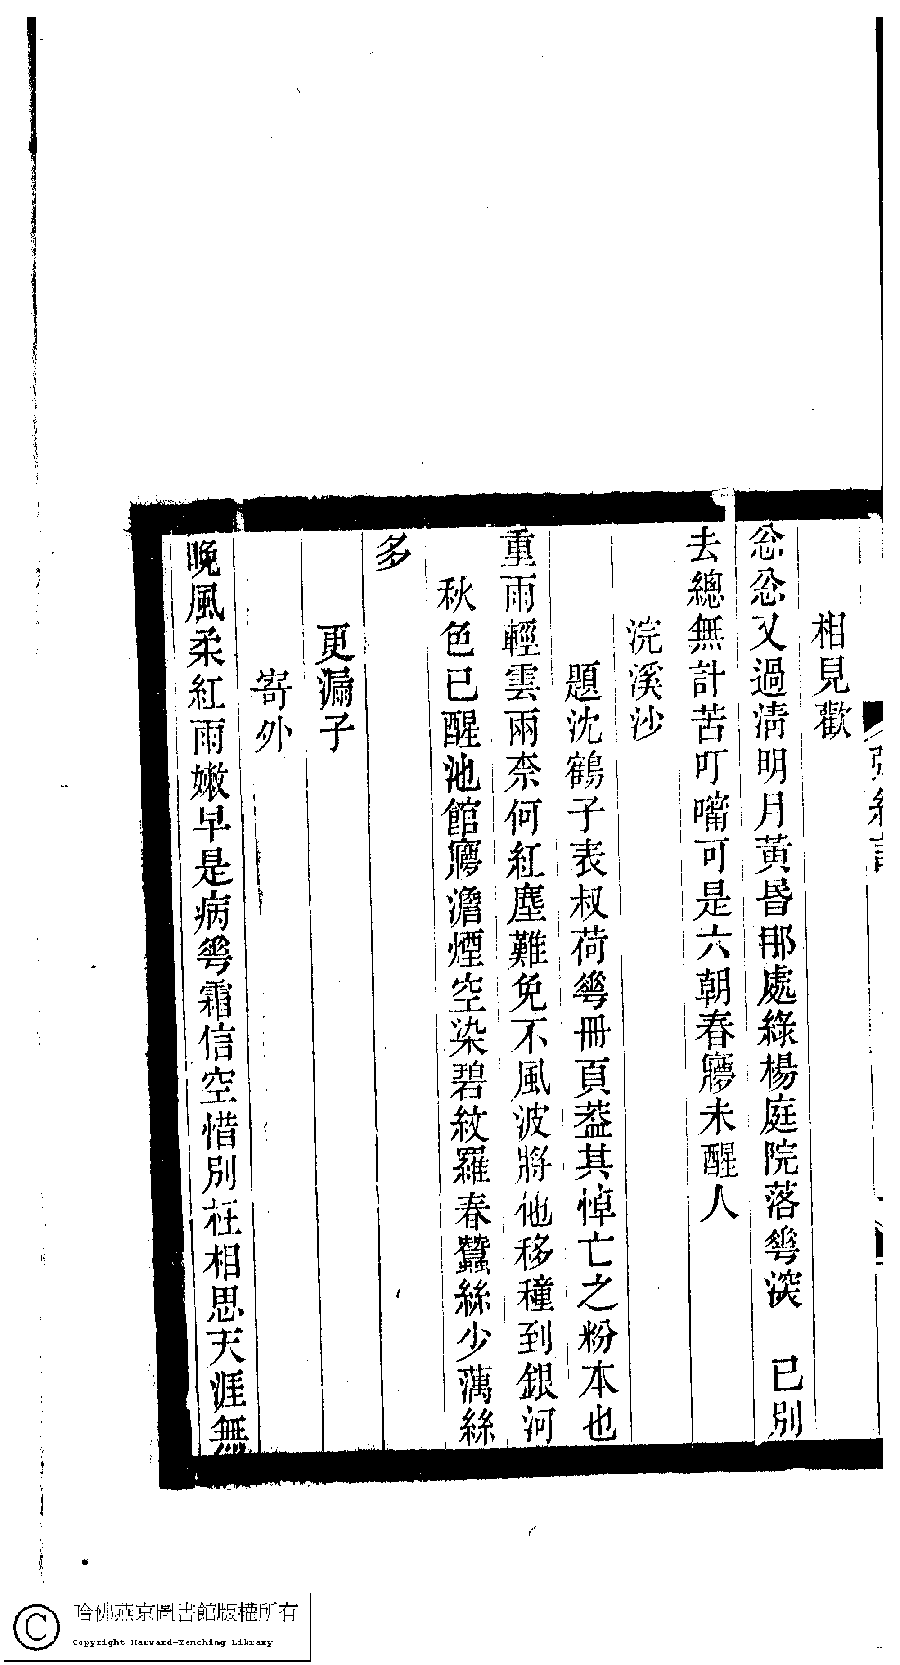 相見歡
忩忩又過淸明月黃昏那處綠楊庭院落蕐深　已別
去總無計苦叮嚀可是六朝春夢未醒人
浣溪沙
題沈鶴子表叔荷蕐冊頁葢其悼亡之粉本也
重雨輕雲兩柰何紅塵難免不風波將他移種到銀河
秋色已醒池館夢澹煙空染碧紋羅春蠶絲少藕絲
多
更漏子
寄外
晚風柔紅雨嫩早是病蕐霜信空惜別枉相思天涯無
哈佛燕京圖書館版權所有
Copyright Harvard-Yenching Library